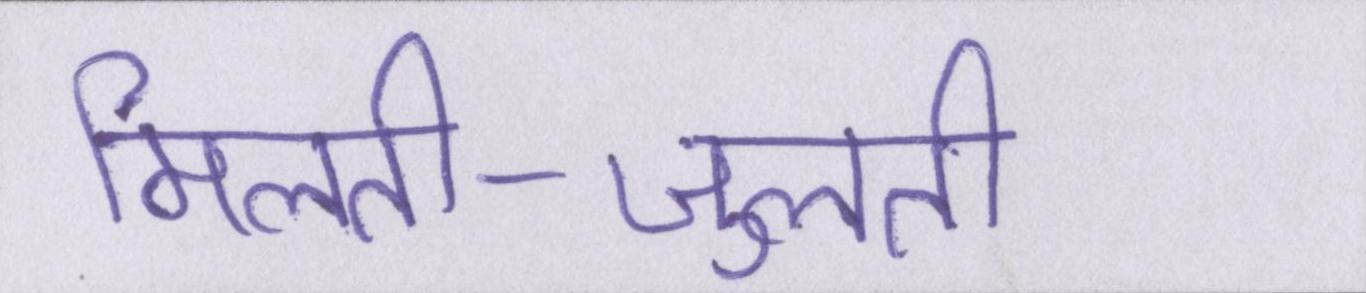 मिलती-जुलती